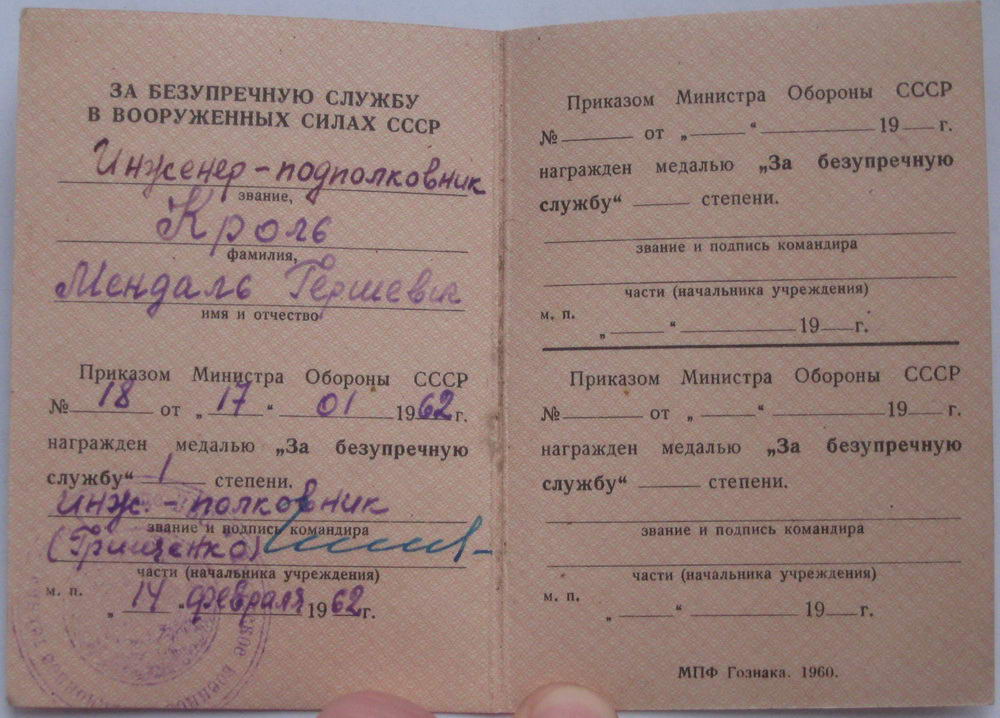 ЗА БЕЗУПРЕЧНУЮ СЛУЖБУ
В ВООРУЖЕННЫХ СИЛАХ СССР
Инженер-подполковник
звание,
Кроль
фамилия,
Мендаль Гершевич
имя и отчество
Приказом Министра Обороны СССР
№ 18 от „ 17 “ 01 1962 г.
награжден медалью „За безупречную
службу“ 1 степени.
инж.-полковник
звание и подпись командира
(Грищенко)
части (начальника учреждения)
м. п.
„ 14 “ февраля 1962 г.
Приказом Министра Обороны СССР
№ от „ “ 19 г.
награжден медалью „За безупречную
службу“ степени.
звание и подпись командира
части (начальника учреждения)
м. п.
„ “ 19 г.
Приказом Министра Обороны СССР
№ от „ “ 19 г.
награжден медалью „За безупречную
службу“ степени.
звание и подпись командира
части (начальника учреждения)
м. п.
„ “ 19 г.
МПФ Гознака. 1960.